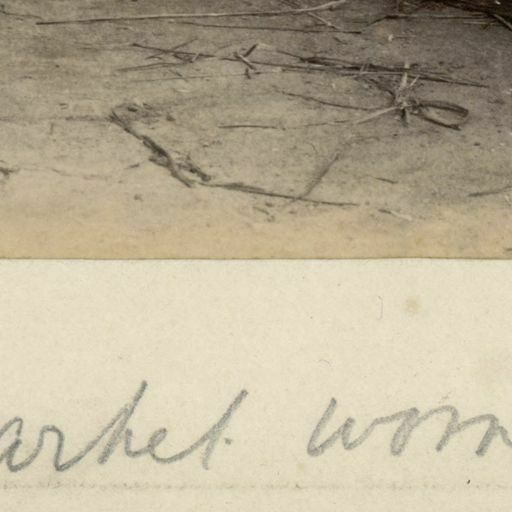 arket wom